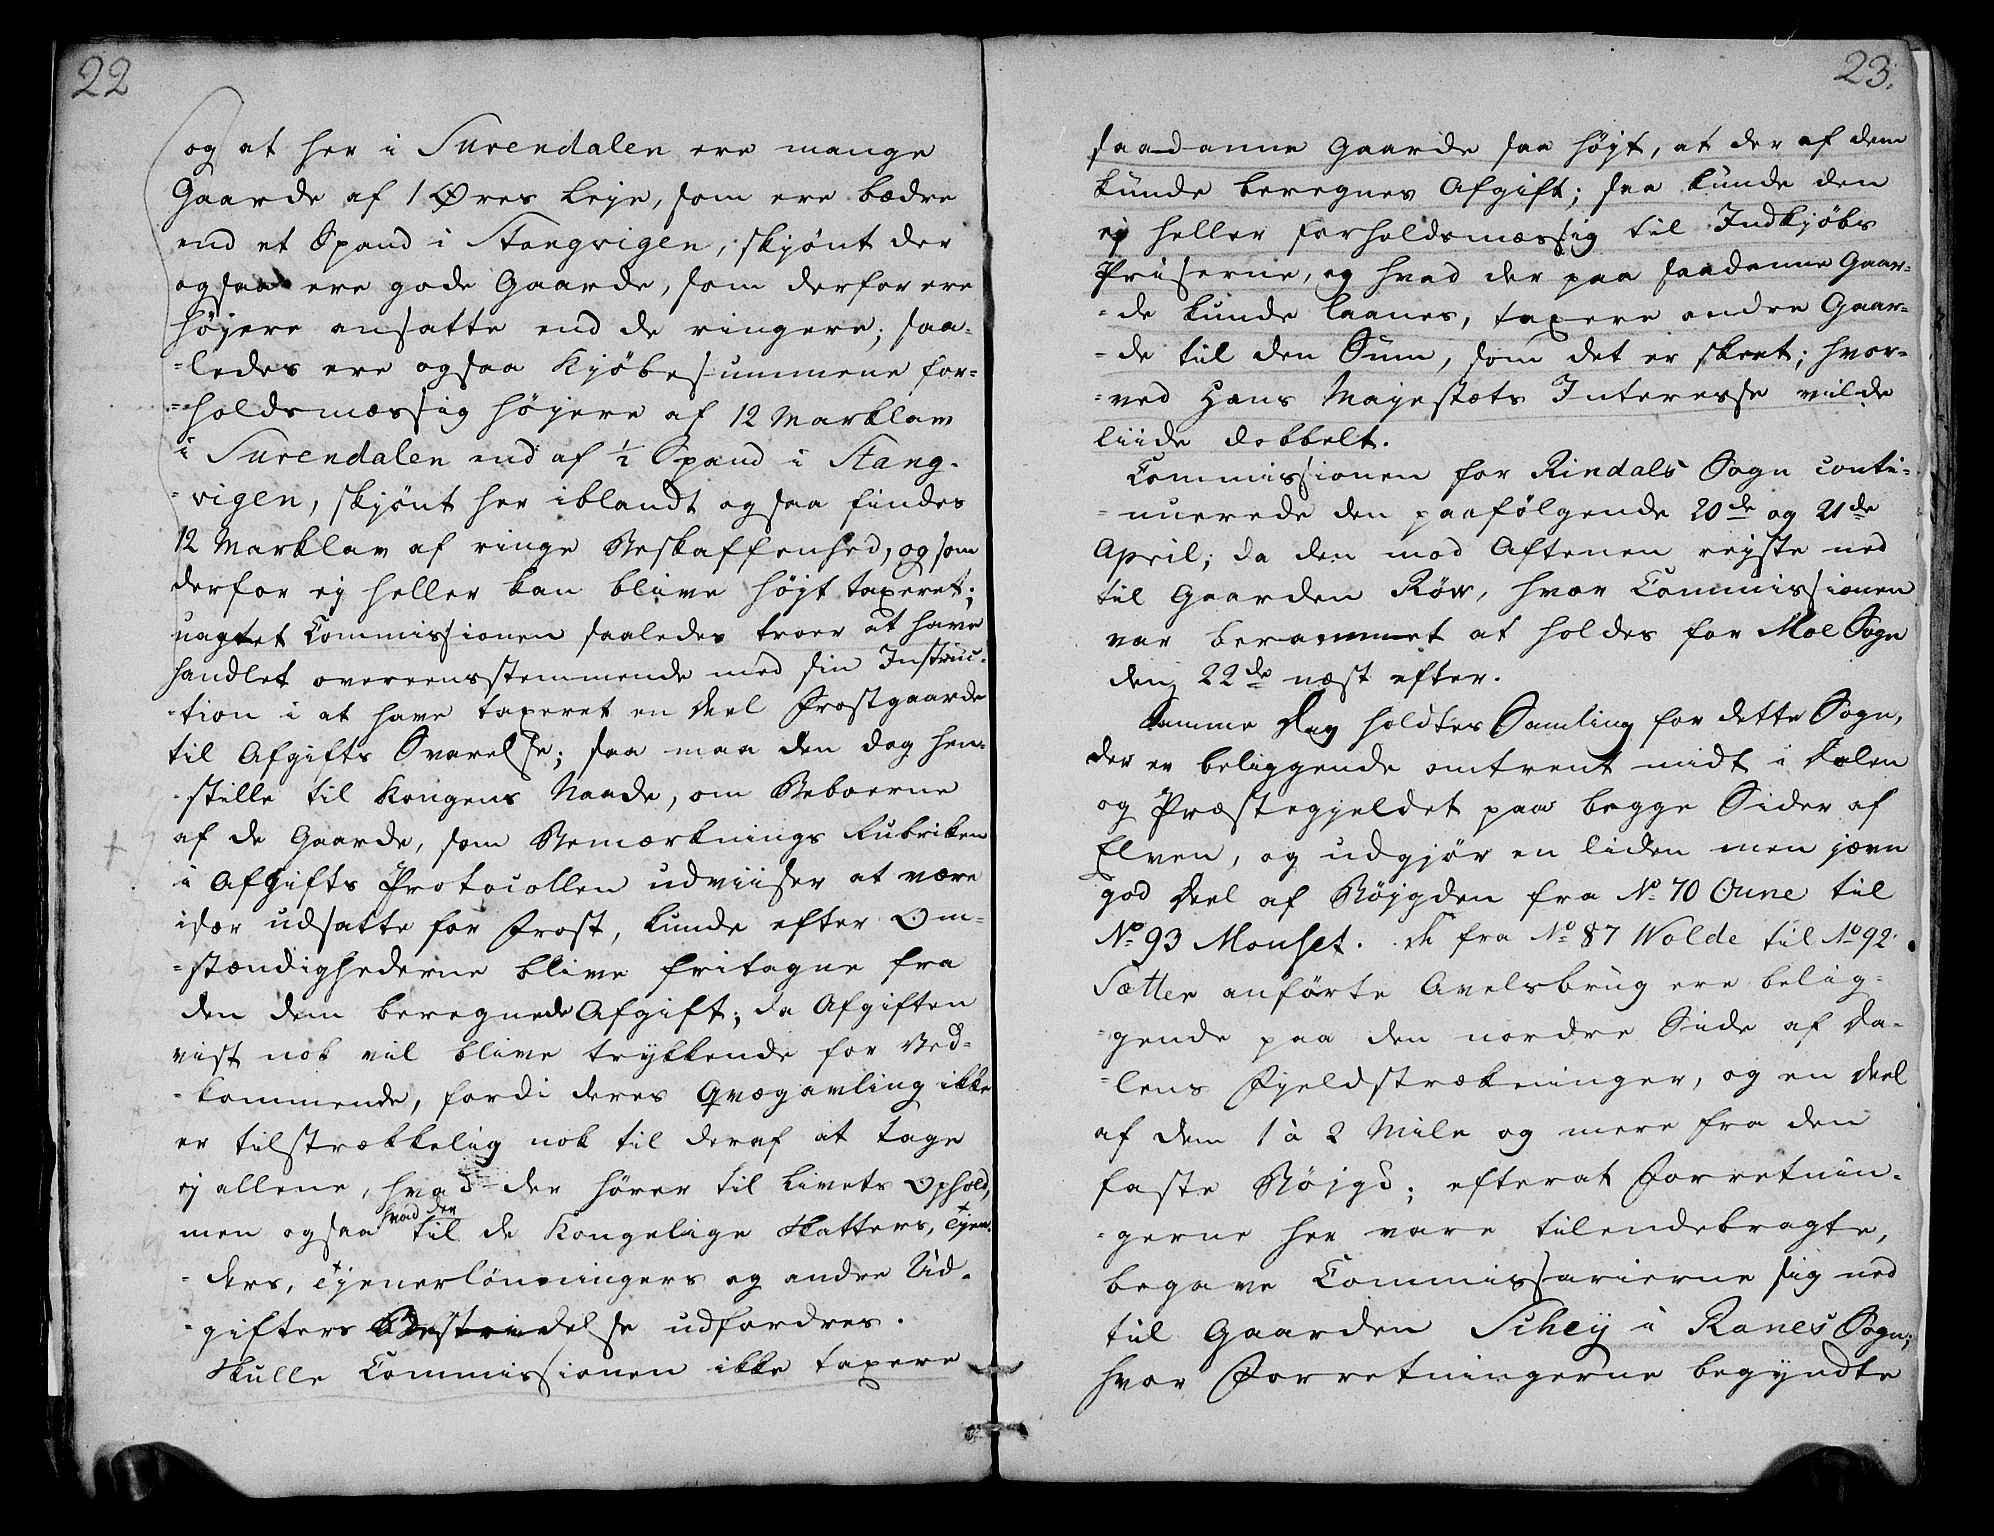 22
og at her i Surendalen ere mange
Gaarde af 1 Øres Leje, som ere bædre
end et Spand i Stangvigen, skjønt der
ogsaa ere gode Gaarde, som derfor ere
højere ansatte end de ringere; saa-
-ledes ere ogsaa Kjøbesummene for-
-holdsmæssig højere af 12 Marklav
i Surendalen end af ½ Spand i Stang-
-vigen, skjønt her iblandt ogsaa findes
12 Marklav af ringe Beskaffenhed, og som
derfor ej heller kan blive højt taxeret;
uagtet Commissionen saaledes troer at have
handlet overeensstemmende med sin Instruc-
-tion i at have taxeret en deel Frostgaarde
til Afgifts Svarelse; saa maa den dog hen-
-stille til Kongens Naade, om Beboerne
af de Gaarde, som Bemærknings Rubriken
i Afgifts Protocollen udviiser at være
især udsatte for Frost, kunde efter Om-
-stændighederne blive fritagne fra
den dem beregnede Afgift; da Afgiften
vist nok vil blive trykkende for Ved-
-kommende, fordi deres Qvægavling ikke
er tilstrækkelig nok til deraf at tage
ej allene, hvad der hører til Livets Ophold,
hvad der
men ogsaa til de Kongelige Skatters, Tjen-
-ders, Tjenerlønningers og andre Ud-
-gifters Bestridelse udfordres.
Skulle Commissionen ikke taxere
23.
saadanne Gaarde saa højt, at der af dem
kunde beregnes Afgift; saa kunde den
ej heller forholdsmæssig til Indkjøbs
Priserne, og hvad der paa saadanne Gaar-
-de kunde laanes, taxere andre Gaar-
-de til den Sum, som det er skeet; hvor-
-ved Hans Majestæts Interesse vilde
liide dobbelt.
Commissionen for Rindals Sogn conti-
-nuerede den paafølgende 20de og 21de
April; da den mod Aftenen rejste ned
til Gaarden Røv, hvor Commissionen
var berammet at holdes for Moe Sogn
den 22de næst efter.
Samme Dag holdtes Samling for dette Sogn,
der er beliggende omtrent midt i Dalen
og Præstegjeldet paa begge Sider af
Elven, og udgjør en liden men jævn
god Deel af Bøjgden fra No 70 Oune til
No 93 Monset. De fra No 87 Wolde til No 92
Sætter anførte Avelsbrug ere belig-
-gende paa den nordre Side af Da-
-lens Fjeldstrækninger, og en deel
af dem 1 à 2 Mile og mere fra den
faste Bøjgd; efterat Forretnin-
-gerne her vare tilendebragte,
begave Commissarierne sig ned
til Gaarden Schey i Ranes Sogn;
hvor Forretningerne begyndte